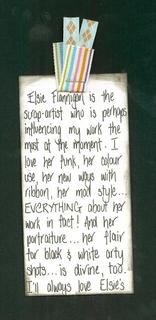 Elsie Flannigan is the
scrap-artist who is perhaps
influencing my work the
most at the moment. I
love her funk, her colour
use, her new ways with
ribbon, her mod style...
EVERYTHING about her
work in fact! And her
portraiture... her flair
for black & white arty
shots... is divine, too.
I'll always love Elsie's